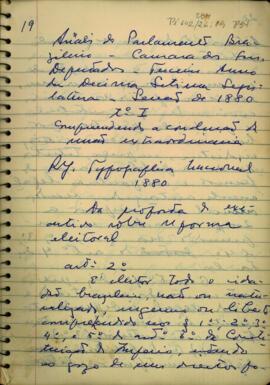 19
Anais do Parlamento Bra-
zileiro - Camara dos Srs.
Deputados - Terceiro Anno
da Decima Setima Legis-
latura - Sessão de 1880
T. I
Comprehendendo a conclusão da
sessão extraordinaria
R.J. Typographia Nacional
1880
Da proposta do
sobre reforma
eleitoral
art. 2º
É eleitor todo o cida-
dão brazileiro, nato ou natu-
ralizado, ingenuo ou liberto
comprehendido nos § 1º 2º 3º
4º e 5º do artº 6º da Consti-
tuição do Imperio,
no gozo de seus direitos po-